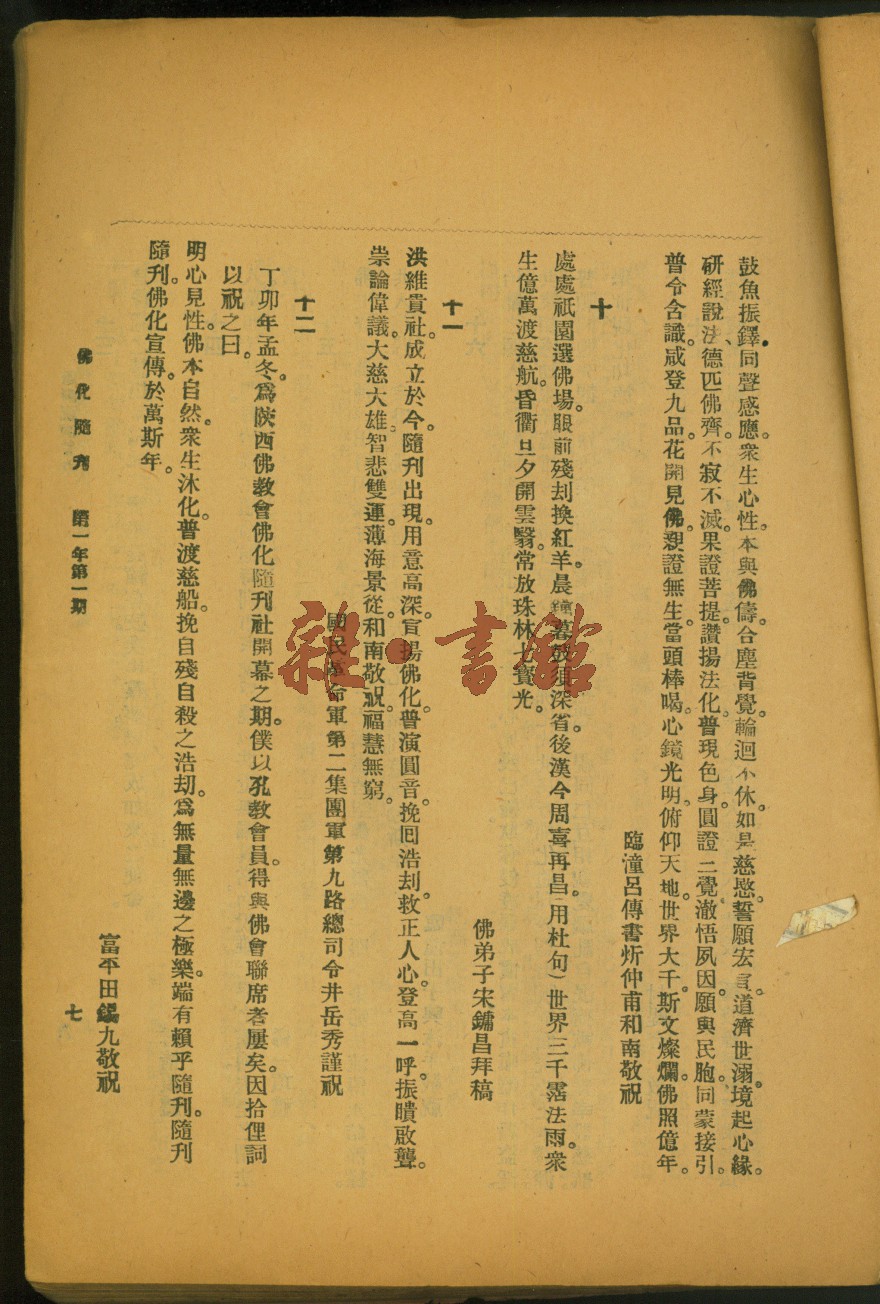 鼓魚振鐸同聲感應。衆生心性。本與佛儔。合塵背覺。輪迴不休。如是慈愍。誓願宏宣。道濟世溺。境起心緣。
研經說法、德匹佛齊。不寂不滅。果證菩提。讚揚法化。普現色身。圓證三覺。澈悟夙因。願與民胞。同蒙接引。
普令含識。咸登九品。花開見佛。親證無生。當頭棒喝。心鏡光明。俯仰天地。世界大千。斯文燦爛。佛照億年。
臨潼呂傳書炘仲甫和南敬祝
十
處處祇園選佛場。眼前殘刦換紅羊。晨鐘暮鼓須深省。後漢今周喜再昌(用杜句)世界三千霑法雨。衆
生億萬渡慈航。昏衢旦夕開雲翳。常放珠林七寶光。
佛弟子宋鏞昌拜稿
十一
洪維貴社。成立於今。隨刊出現。用意高深。宣揚佛化。普演圓音。挽囘浩刦。救正人心。登高一呼。振瞶啟聾。
崇論偉議。大慈大雄。智悲雙運。薄海景從。和南敬祝。福慧無窮。
國民革命軍第二集團軍第九路總司令井岳秀謹祝
十二
丁卯年孟冬。爲陝西佛教會佛化隨刊社開幕之期。僕以孔教會員。得與佛會聯席者屢矣。因拾俚詞
以祝之曰。
明心見性。佛本自然。衆生沐化。普渡慈船。挽自殘自殺之浩刧。爲無量無邊之極樂。端有賴乎隨刊。隨刊
隨刊。佛化宣傳。於萬斯年。
富平田九敬祝
佛化隨刊 第一年第一期
七
雜·書館